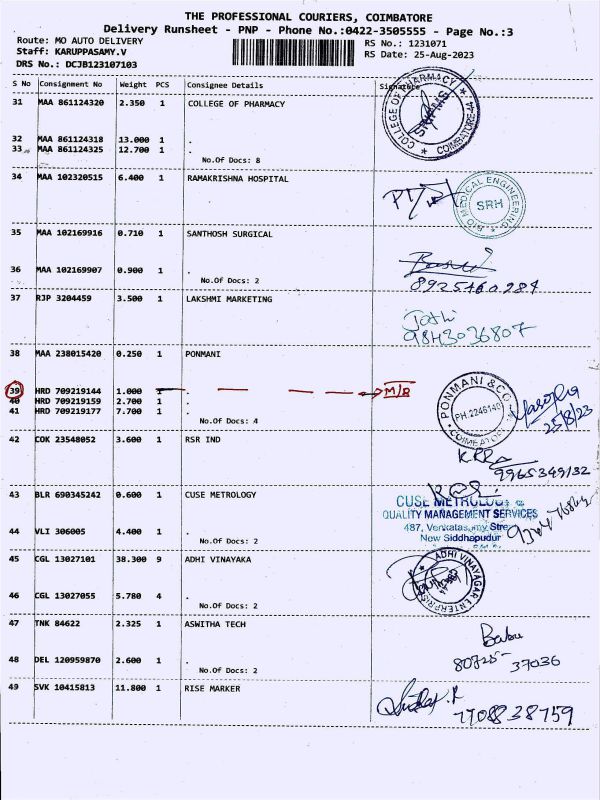 THE PROFESSIONAL COURIERS, COIMBATORE
Delivery Runsheet - PNP - Phone No.:0422-3505555 - Page No.:3
Route: MO AUTO DELIVERY RS No.: 1231071
Staff: KARUPPASAMY.V RS Date: 25-Aug-2023
DRS No.: DCJB123107103
S No Consignment No Weight PCS Consignee Details Signature
31 MAA 861124320 2.350 1 COLLEGE OF PHARMACY
COLLEGE OF PHARMACY COIMBATORE-44
SRIPMS
32 MAA 861124318 13.000 1 .
33 MAA 861124325 12.700 1 .
No.Of Docs: 8
34 MAA 102320515 6.400 1 RAMAKRISHNA HOSPITAL
BIO MEDICAL ENGINEERING
SRH
35 MAA 102169916 0.710 1 SANTHOSH SURGICAL
36 MAA 102169907 0.900 1 .
No.Of Docs: 2
8925460984
37 RJP 3204459 3.500 1 LAKSHMI MARKETING
Jothi
9843036807
38 MAA 238015420 0.250 1 PONMANI
39 HRD 709219144 1.000 1 . M/B
40 HRD 709219159 2.700 1 .
41 HRD 709219177 7.700 1 .
No.Of Docs: 4
PONMANI & CO COIMBATORE
PH.2246140
25/8/23
42 COK 23548052 3.600 1 RSR IND
9965349132
43 BLR 690345242 0.600 1 CUSE METROLOGY
CUSE METROLOGY &
QUALITY MANAGEMENT SERVICES
487, Venkatasamy Street
New Siddhapudur
44 VLI 306005 4.400 1 .
No.Of Docs: 2
45 CGL 13027101 38.300 9 ADHI VINAYAKA
ADHI VINAYAGAR ENTERPRISES
46 CGL 13027055 5.780 4 .
No.Of Docs: 2
47 TNK 84622 2.325 1 ASWITHA TECH
Babu
80725-37036
48 DEL 120959870 2.600 1 .
No.Of Docs: 2
49 SVK 10415813 11.800 1 RISE MARKER
7708838759